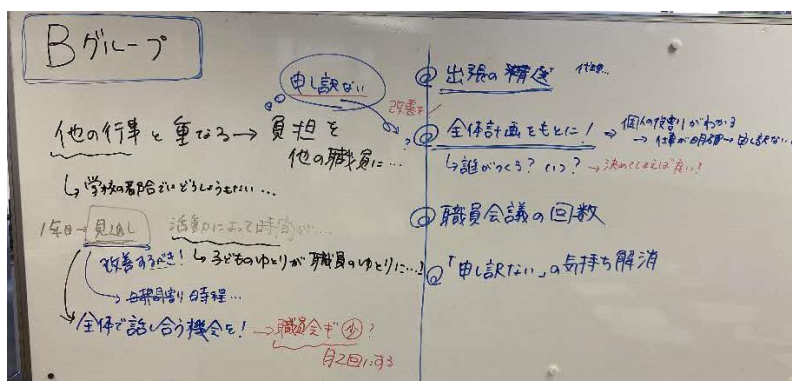 Bグループ
申し訳ない
他の行事と重なる→負担を
他の職員に…
↳学校の都合ではどうしようもない…
1年目→見通し 活動によって時間が…
改善するべき! ↳子どものゆとりが職員のゆとりに…!
→日課 時程…
全体で話し合う機会を! →職員会も少?
月2回にする
出張の精選
改善を
?全体計画をもとに! ⇒個人の役割りがわかる
→仕事が明確→申し訳ない
↳誰がつくる?いつ?→決めてしまえば良い!
職員会議の回数
「申し訳ない」の気持ち解消